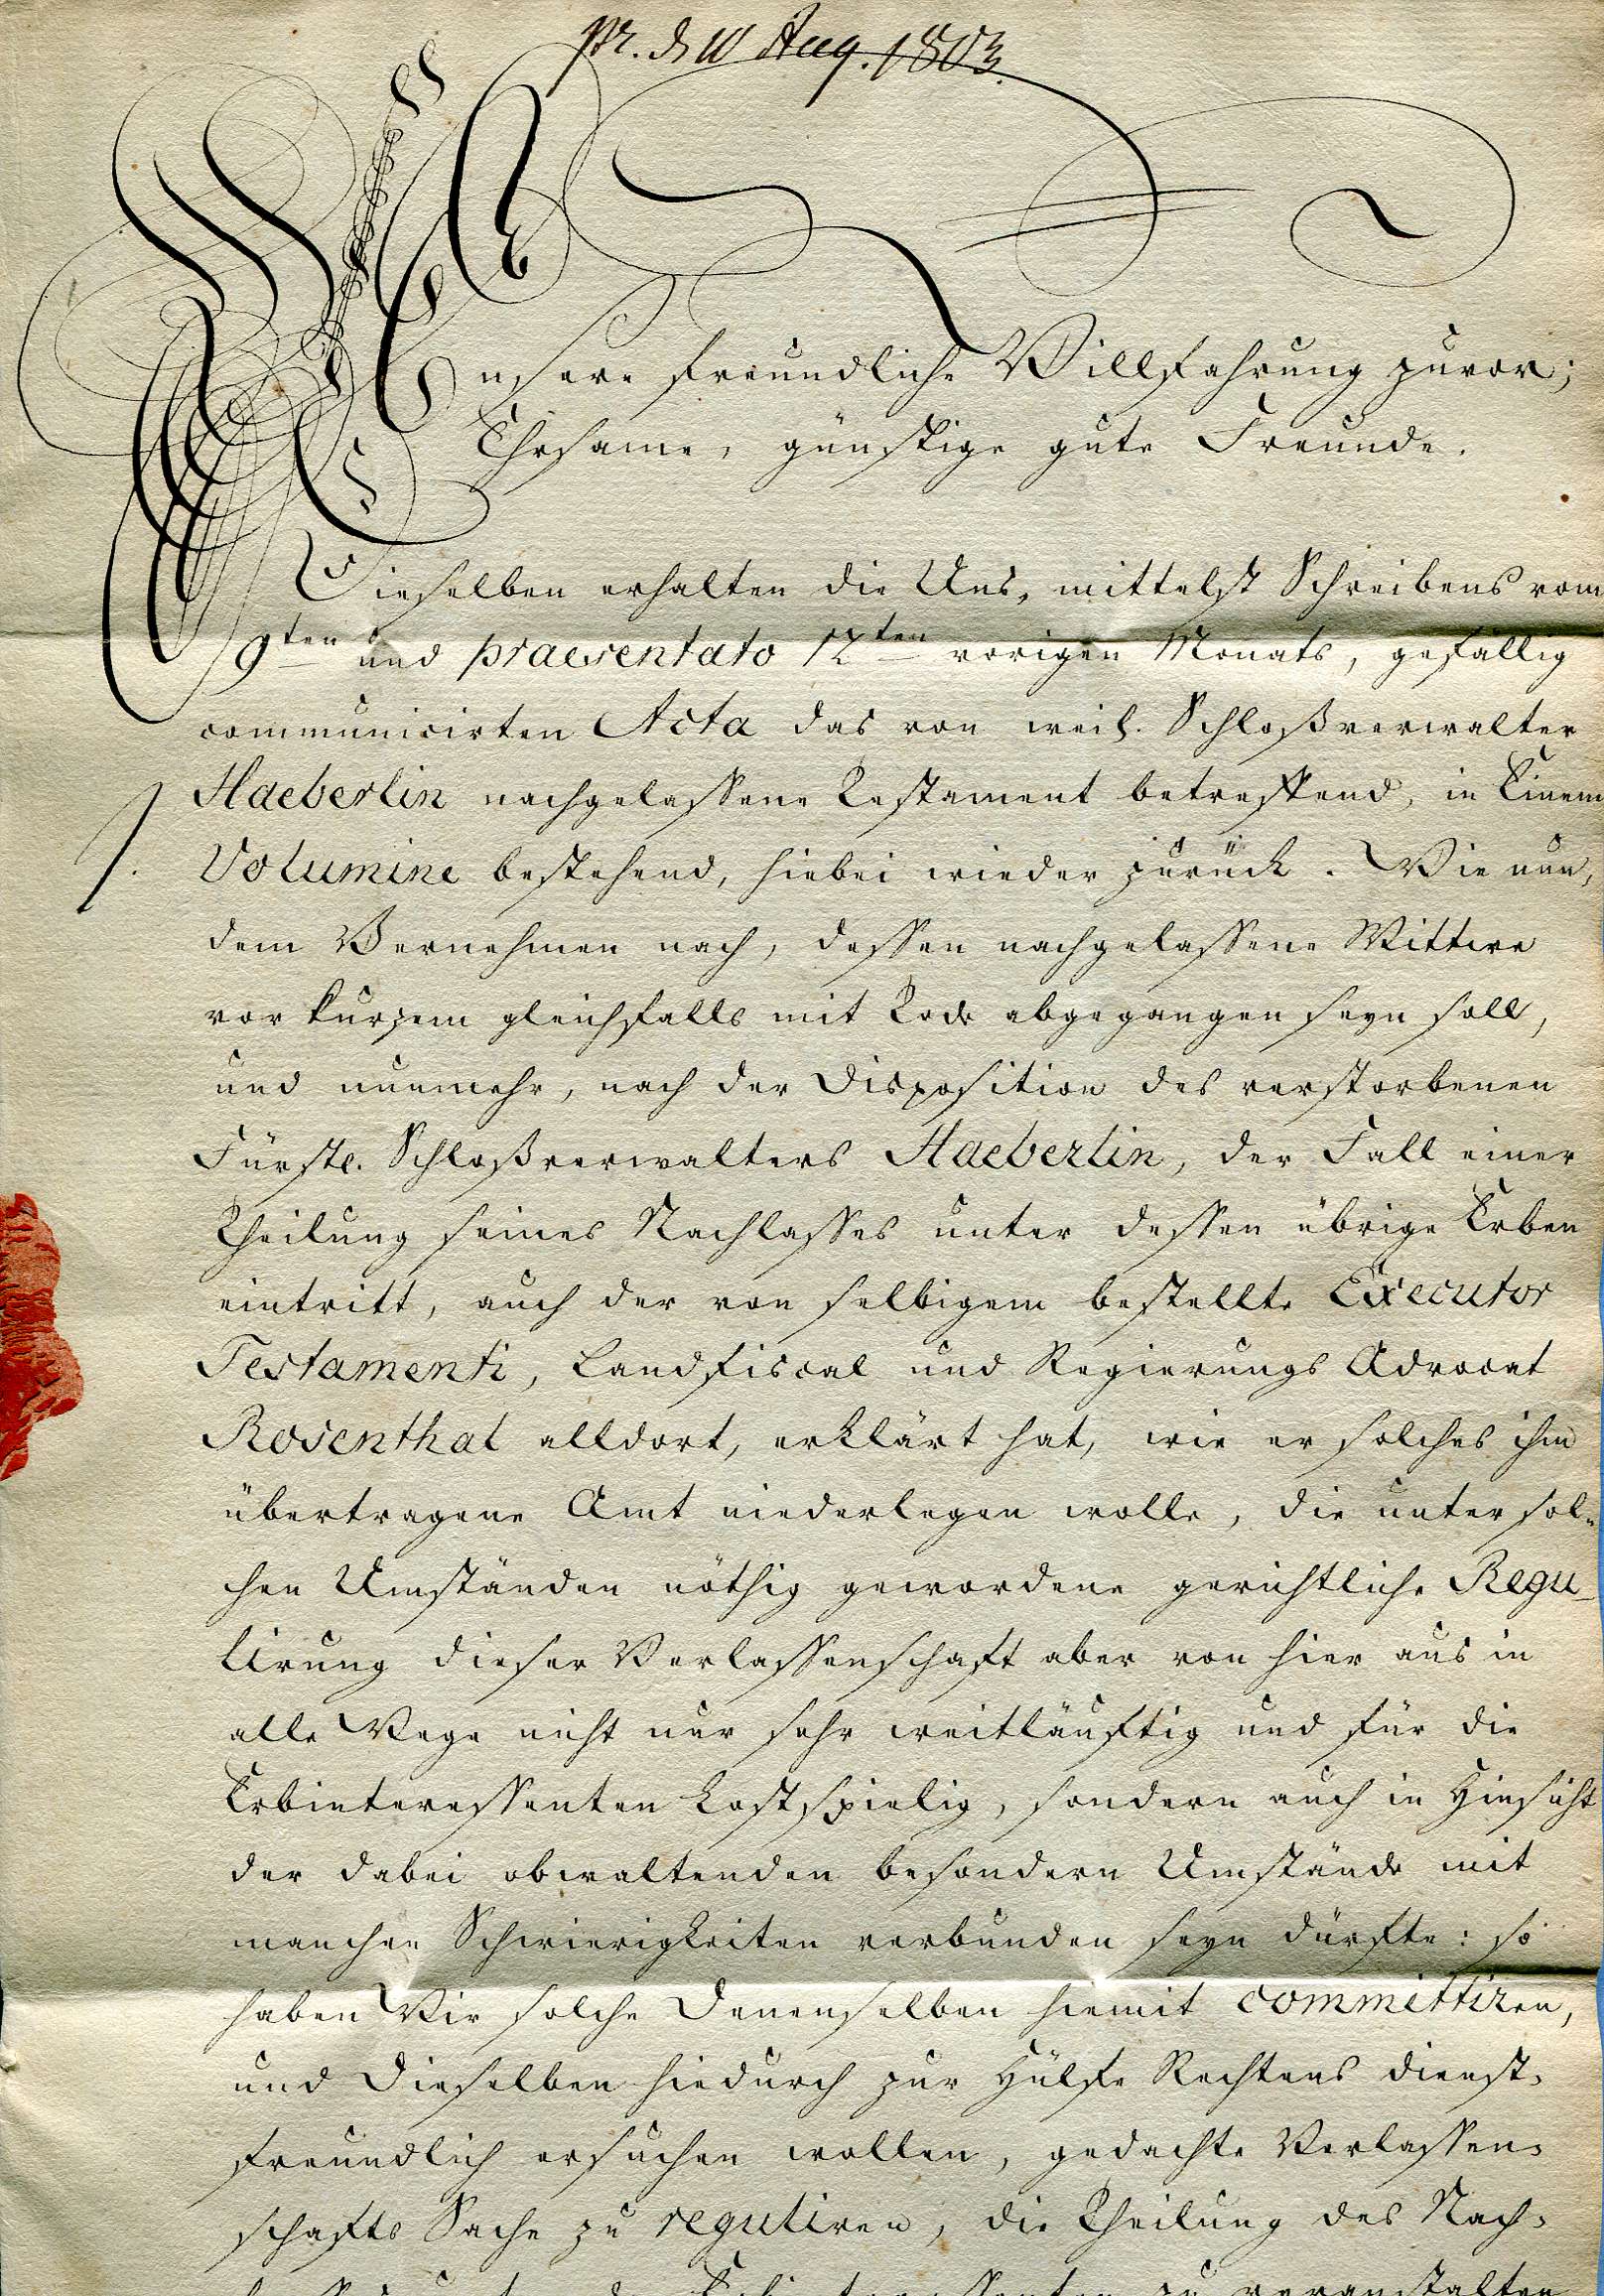 pr. d. 10 Aug. 1803.
Unsere freundliche Willfahrung zuvor;
Ehrsame, günstige gute Freunde.
Dieselben erhalten die Uns, mittelst Schreibens vom
9ten und praesentato 12ten vorigen Monats, gefällig
communicirten Acta das von weil. Schloßverwalter
Haeberlin nachgelassene Testament betreffend, in Einem
Volumine bestehend, hiebei wieder zurück. Wie nun,
dem Vernehmen nach, dessen nachgelassene Wittwe
vor kurzem gleichfalls mit Tode abgegangen seyn soll,
und nunmehr, nach der Disposition des verstorbenen
Fürstl. Schloßverwalters Haeberlin, der Fall einer
Theilung seines Nachlasses unter dessen übrige Erben
eintritt, auch der von selbigem bestellte Executor
Testamenti, Landfiscal und Regierungs Advocat
Rosenthal alldort, erklärt hat, wie er solches ihm
übertragene Amt niederlegen wolle, die unter sol-
chen Umständen nöthig gewordene gerichtliche Regu-
lirung dieser Verlassenschaft aber von hier aus in
alle Wege nicht nur sehr weitläuftig und für die
Erbinteressenten kostspielig, sondern auch in Hinsicht
der dabei obwaltenden besondern Umstände mit
manchen Schwierigkeiten verbunden seyn dürfte: so
haben Wir solche Denenselben hiemit committiren,
und Dieselben hiedurch zur Hülfe Rechtens dienst-
freundlich ersuchen wollen, gedachte Verlassen-
schafts Sache zu reguliren, die Theilung des Nach-
zu veranstalten